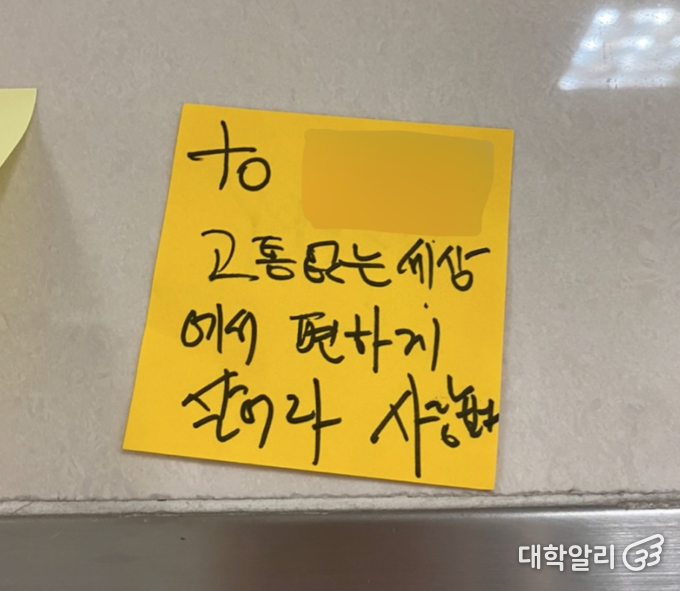 to
고통없는 세상
에서 편하게
살어라 사랑해
대학알리